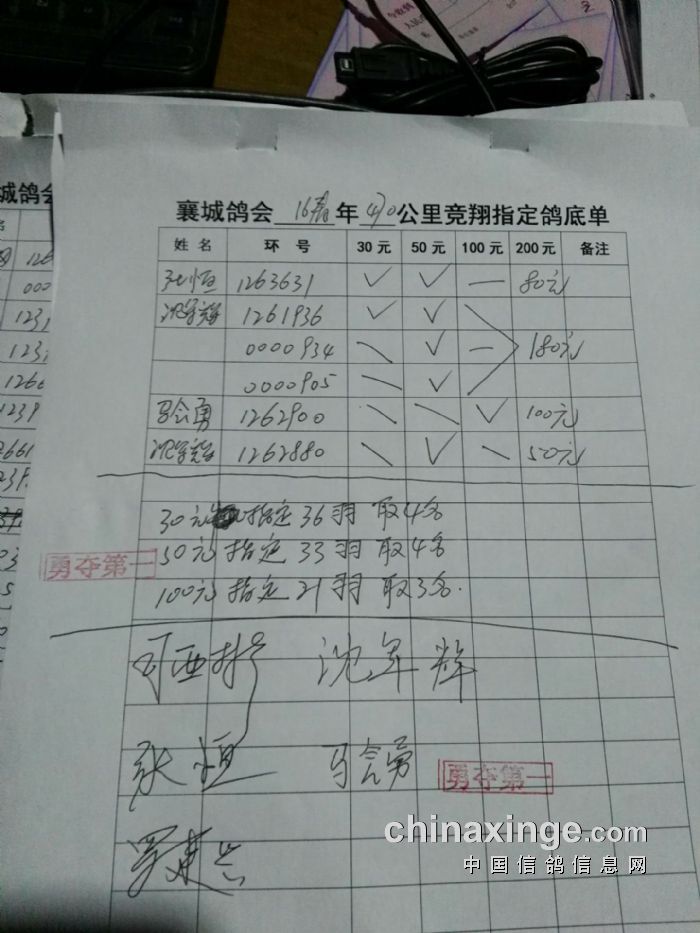 襄城鸽会 16春 年 470 公里竞翔指定鸽底单
姓名 环号 30元 50元 100元 200元 备注
张恒 1263631 ✓ ✓ — 80元
沈军辉 1261936 ✓ ✓
0000934 \ ✓ — 180元
0000905 \ ✓
马会勇 1262900 \ \ ✓ 100元
沈军辉 1262880 \ ✓ \ 50元
30元 指定 36羽 取4名
50元 指定 33羽 取4名
勇夺第一
100元 指定 21羽 取3名.
沈军辉
张恒 马会勇
勇夺第一
chinaxinge.com
中国信鸽信息网